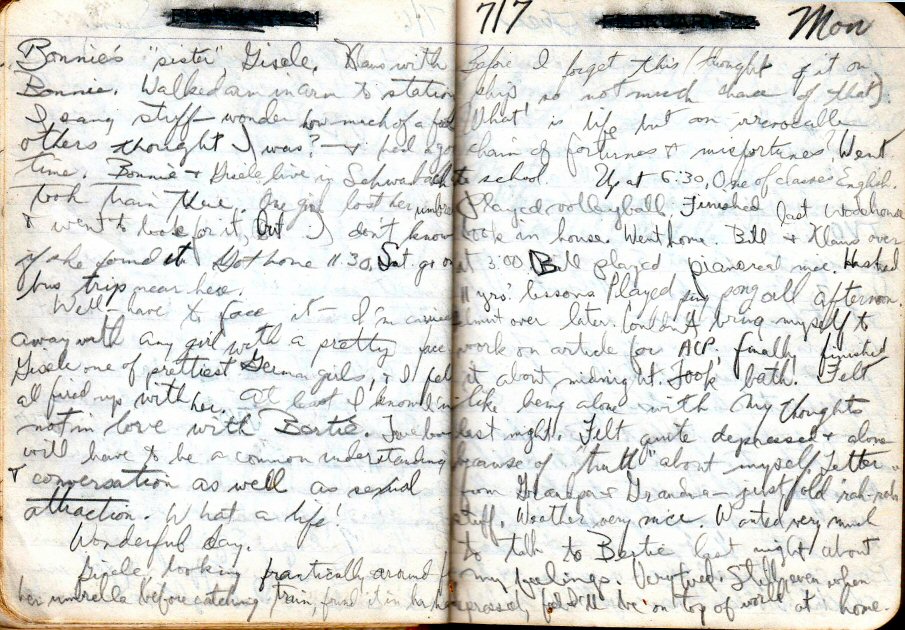 Bonnie's "sister", Gisele. Klaus with
Bonnie. Walked arm in arm to station
I sang, stuff - wonder how much of a fool
others thought I was? - & had a good
time. Bonnie & Gisele live in Schwabach &
took train there. One girl lost her umbrella
& went to look for it, but I don't know
if she found it. Got home 11:30. Sat. go on
bus trip near here.
Well - have to face it - I'm carried
away with any girl with a pretty face.
Gisele one of prettiest German girls, & I felt
all fired up with her. At least I know I'm
not in love with Bertie. True love
will have to be a common understanding
& conversation as well as sexual
attraction. What a life!
Wonderful day.
Gisele looking frantically around for
her umbrella before catching train, found it in her
7/7 Mon
Before I forget this (thought of it on
ship so not much chance of that).
"What is life but an irrevocable
chain of fortunes & misfortunes?" Went
to school. Up at 6:30. One of classes English.
Played volleyball. Finished last Wodehouse
book in house. Went home. Bill & Klaus over
at 3:00. Bill played piano real nice. Has had
11 yrs' lessons. Played ping pong all afternoon.
over later. Couldn't bring myself to
work on article for ACP, finally finished
it about midnight. Took bath. Felt
like being alone with my thoughts
last night. Felt quite depressed & alone
because of "truth" about myself. Letter
from Grandpa & Grandma - just old rah-rah
stuff. Weather very nice. Wanted very much
to talk to Bertie last night about
my feelings. Very tired. Still, even when
depressed, feel I'll be on top of world at home.